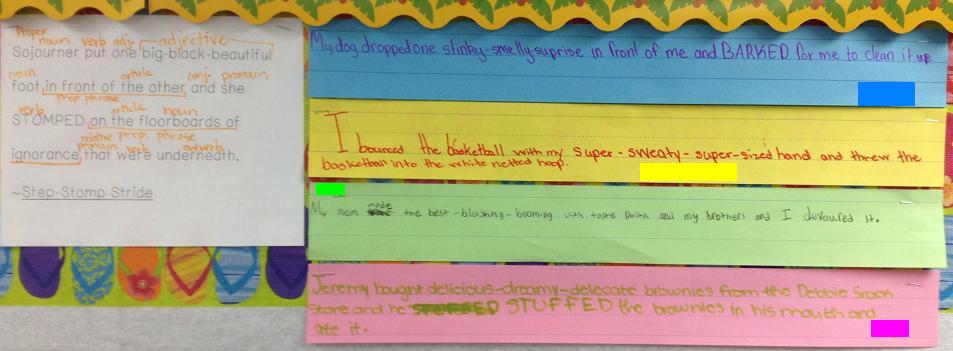 Proper
noun verb adj. adjective
Sojourner put one big-black-beautiful
noun article conj. pronoun
foot in front of the other, and she
prep. phrase
verb article noun
STOMPED on the floorboards of
relative prep. phrase
pronoun verb adverb
ignorance, that were underneath.
~Step-Stomp Stride
My dog dropped one stinky-smelly-suprise in front of me and BARKED for me to clean it up.
I bounced the basketball with my super-sweaty-super-sized hand and threw the
basketball into the white netted hoop.
My mom made the best-blasting-booming with taste Pasta and my brothers and I devoured it.
Jeremy bought delicious-dreamy-delecate brownies from the Debbie Snack
Store and he STUFFED the brownies in his mouth and
ate it.